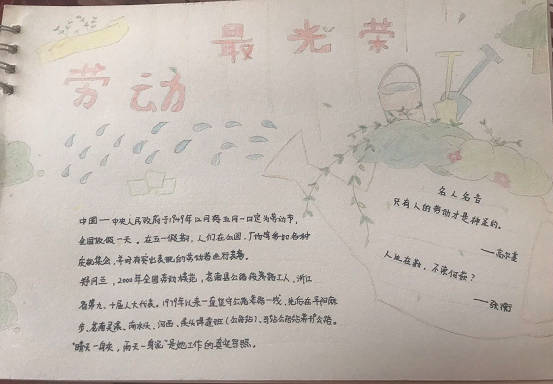 劳动最光荣
中国——中央人民政府于1949年12月将五月一日定为劳动节,
全国放假一天。在五一假期,人们在公园、广场等参加各种
庆祝集会,
郑同兰,2000年全国劳动模范,苍南县公路段养路工人,浙江
省第九、十届人大代表。1979年以来一直坚守公路养路一线,先后在
步、苍南灵溪、南水头、河西、
“晴天一身灰,雨天一身泥”是她工作的真实写照。
名人名言
只有人的劳动才是神圣的。
——高尔基
人生在勤,不索何获?
——张衡